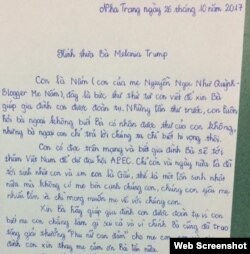 Nha Trang ngày 26 tháng 10 năm 2017
Kính thưa Bà Melania Trump
Con là Nấm (con của mẹ Nguyễn Ngọc Như Quỳnh -
Blogger Mẹ Nấm), đây là bức thư thứ tư con viết để xin Bà
giúp gia đình con được đoàn tụ. Những lần thư trước, con luôn
hỏi bà ngoại không biết Bà có nhận được thư của con không,
nhưng bà ngoại con chỉ trả lời chúng ta chỉ biết hi vọng thôi.
Con có đọc trên mạng và biết gia đình Bà sẽ tới
thăm Việt Nam để dự đại hội APEC. Chỉ còn vài ngày nữa là đã
tới sinh nhật con và em con là Gấu, thế là một lần sinh nhật
nữa mà không có mẹ bên cạnh chúng con, chúng con yêu mẹ
nhiều lắm và chỉ mong muốn mẹ về với chúng con.
Xin Bà hãy giúp gia đình con được đoàn tụ vì con
biết mẹ con chẳng làm gì sai cả và vì chính Bà cũng đã trao
tặng giải thưởng "Phụ nữ can đảm" cho mẹ con
đình con xin thay mẹ cảm ơn Bà lần nữa.
Web Screenshot